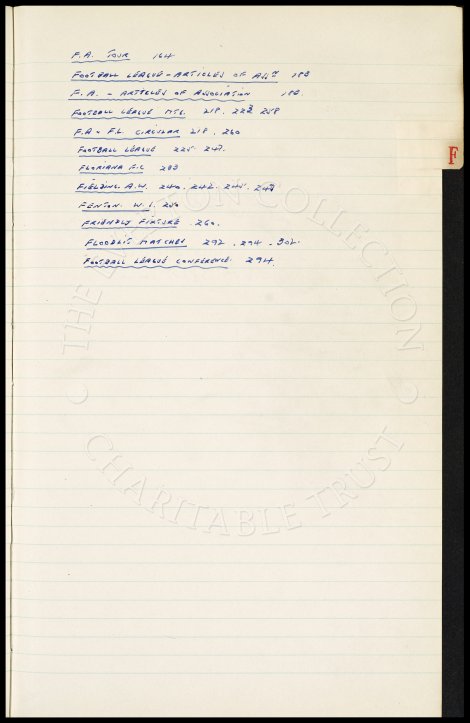 F.A. TOUR 164
FOOTBALL LEAGUE - ARTICLES OF ASSN 188
F.A. - ARTICLES OF ASSOCIATION 188
FOOTBALL LEAGUE MTG. 218. 223 258
F.A & F.L. CIRCULAR. 218. 260
FOOTBALL LEAGUE 225. 247.
FLORIANA F.C 233
FIELDING. A.W. 240. 242. 245. 248
FENTON. W.J. 250
FRIENDLY FIXTURE 260.
FLOODLIT MATCHES 292. 294. 302.
FOOTBALL LEAGUE CONFERENCE. 294.
F
THE COLLECTION
CHARITABLE TRUST